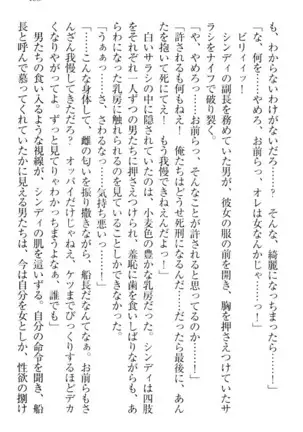 も、わからないわけがないだろ……？　そんな、綺麗になっちまったら……！」
ビリィィッ！
「な、何を……やめろ、お前らっ、オレは女なんかじゃ……！」
シンディの副長を務めていた男が、彼女の服の前を開き、胸を押さえつけていたサ
ラシをナイフで破り裂く。
「や、やめろ、お前ら、そんなことが許されると思ってるのか……！」
「許されるも何もねえ！　俺たちはどうせ死刑になるんだ！　だったら最後に、あん
たを抱いて死にてえ！　もう我慢できねえんだよっ！」
白いサラシの中に隠されていたのは、小麦色の豊かな乳房だった。シンディは四肢
をそれぞれ一人ずつの男たちに押さえつけられ、羞恥に歯を食いしばりながら、あ
らわになった乳房に触れられるのを見ていることしかできなかった。
「うぁぁっ……さ、さわるなっ……！」
「こんな身体して、雌の匂いを振り撒きながら、船長だなんてなぁ。お前らもさ
んざん我慢してきただろ？　オッパイだけじゃねえ、ケツまでびっくりするほどデカ
くなりやがってよ。ずっと見てりゃわかっちまうよなあ、誰でも」
男たちの食い入るような視線が、シンディの肌を這いずる。自分の命令を聞き、船
長と呼んで慕ってくれていたかに見える男たちは、今は自分を女としか、性欲の捌け